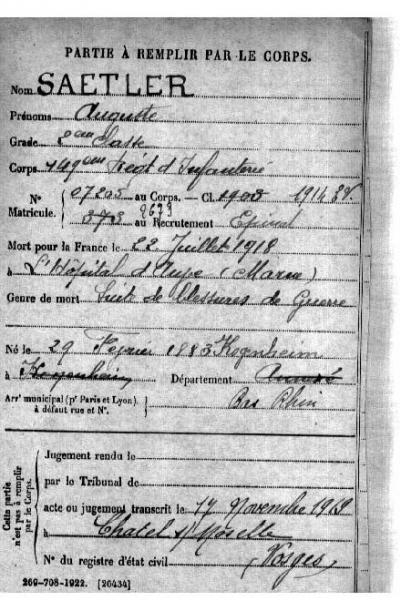 PARTIE À REMPLIR PAR LE CORPS.
Nom SAETLER
Prénoms Auguste
Grade 2ème classe
Corps 149ème Régt d'Infanterie
N° 07205 au Corps. — Cl. 1903 1914 EV.
Matricule. 373 2673 au Recrutement Epinal
Mort pour la France le 22 Juillet 1918
à L'Hôpital d'Auge (Marne)
Genre de mort Suite de blessures de Guerre
Né le 29 Février 1883 Kogenheim
à Kogenheim Département
Arr' municipal (p' Paris et Lyon), Bas Rhin
à défaut rue et N°.
Cette partie n'est pas à remplir par le Corps.
Jugement rendu le
par le Tribunal de
acte ou jugement transcrit le 17 Novembre 1919
à Chatel s/ Moselle
N° du registre d'état civil (Vosges)
269-708-1922. [26434]